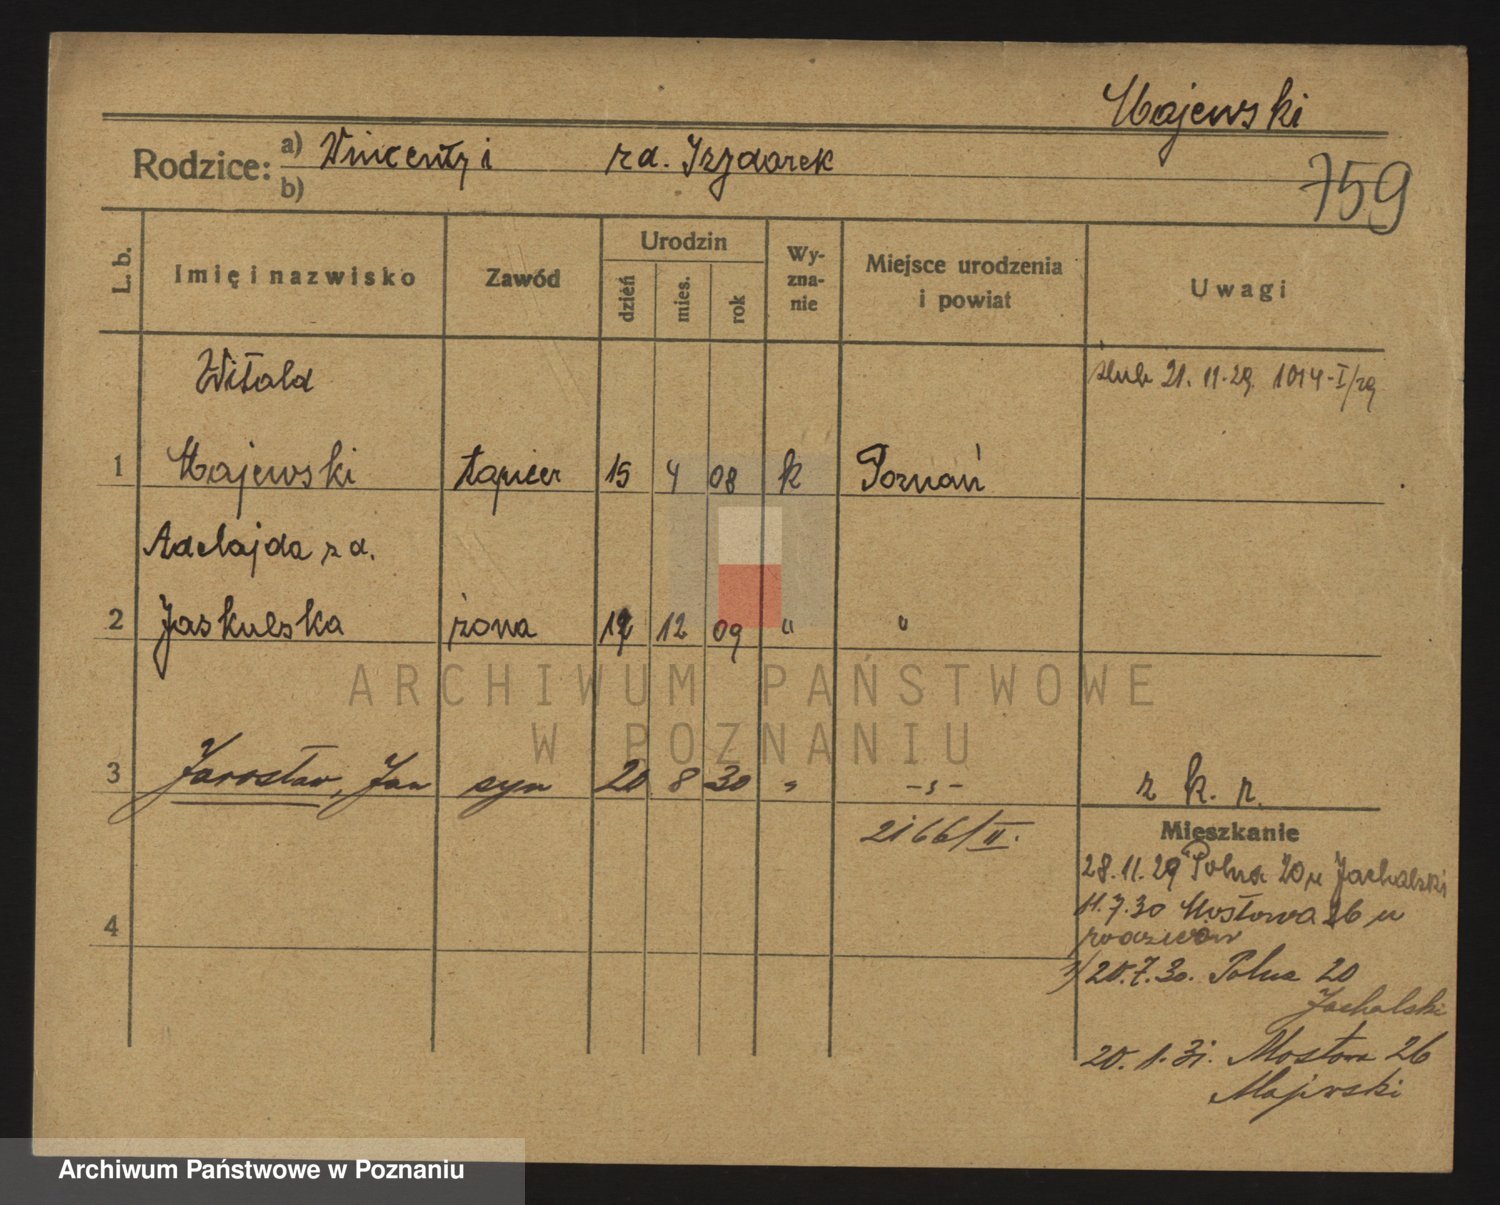 Majewski
759
Rodzice: a) Wincenty i zd. Izydorek
b)
L. b. Imię i nazwisko Zawód Urodzin dzień mies. rok Wy-zna-nie Miejsce urodzenia i powiat Uwagi
Witold ślub 21. 11. 29. 1014-I/29
1 Majewski tapicer 15 4 08 k Poznań
Adelajda z d.
2 Jaskulska żona 12 09 " "
ARCHIWUM PAŃSTWOWE
W POZNANIU
3 Jarosław, Jan syn 20 8 30 " -"-
z k. r.
2166/II.
Mieszkanie
28.11.29 Polna 20 u Jachalski
4
11.7.30 Mostowa 26 u
rodziców
20.7.30. Polna 20
Jachalski
20. 1. 31. Mostowa 26
Majewski
Archiwum Państwowe w Poznaniu